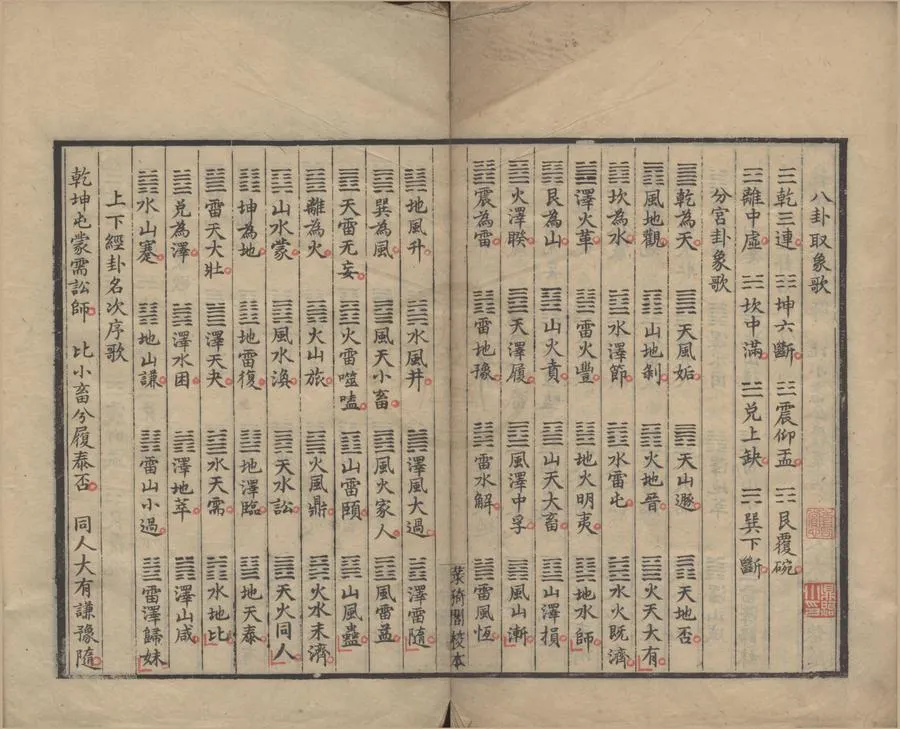 八卦取象歌
☰乾三連 ☷坤六斷 ☳震仰盂 ☶艮覆碗
☲離中虛 ☵坎中滿 ☱兌上缺 ☴巽下斷
分宮卦象歌
乾為天 天風姤 天山遯 天地否
風地觀 山地剝 火地晉 火天大有
坎為水 水澤節 水雷屯 水火既濟
澤火革 雷火豐 地火明夷 地水師
艮為山 山火賁 山天大畜 山澤損
火澤睽 天澤履 風澤中孚 風山漸
震為雷 雷地豫 雷水解 雷風恆
菉猗閣校本
地風升 水風井 澤風大過 澤雷隨
巽為風 風天小畜 風火家人 風雷益
天雷无妄 火雷噬嗑 山雷頤 山風蠱
離為火 火山旅 火風鼎 火水未濟
山水蒙 風水渙 天水訟 天火同人
坤為地 地雷復 地澤臨 地天泰
雷天大壯 澤天夬 水天需 水地比
兌為澤 澤水困 澤地萃 澤山咸
水山蹇 地山謙 雷山小過 雷澤歸妹
上下經卦名次序歌
乾坤屯蒙需訟師 比小畜兮履泰否 同人大有謙豫隨